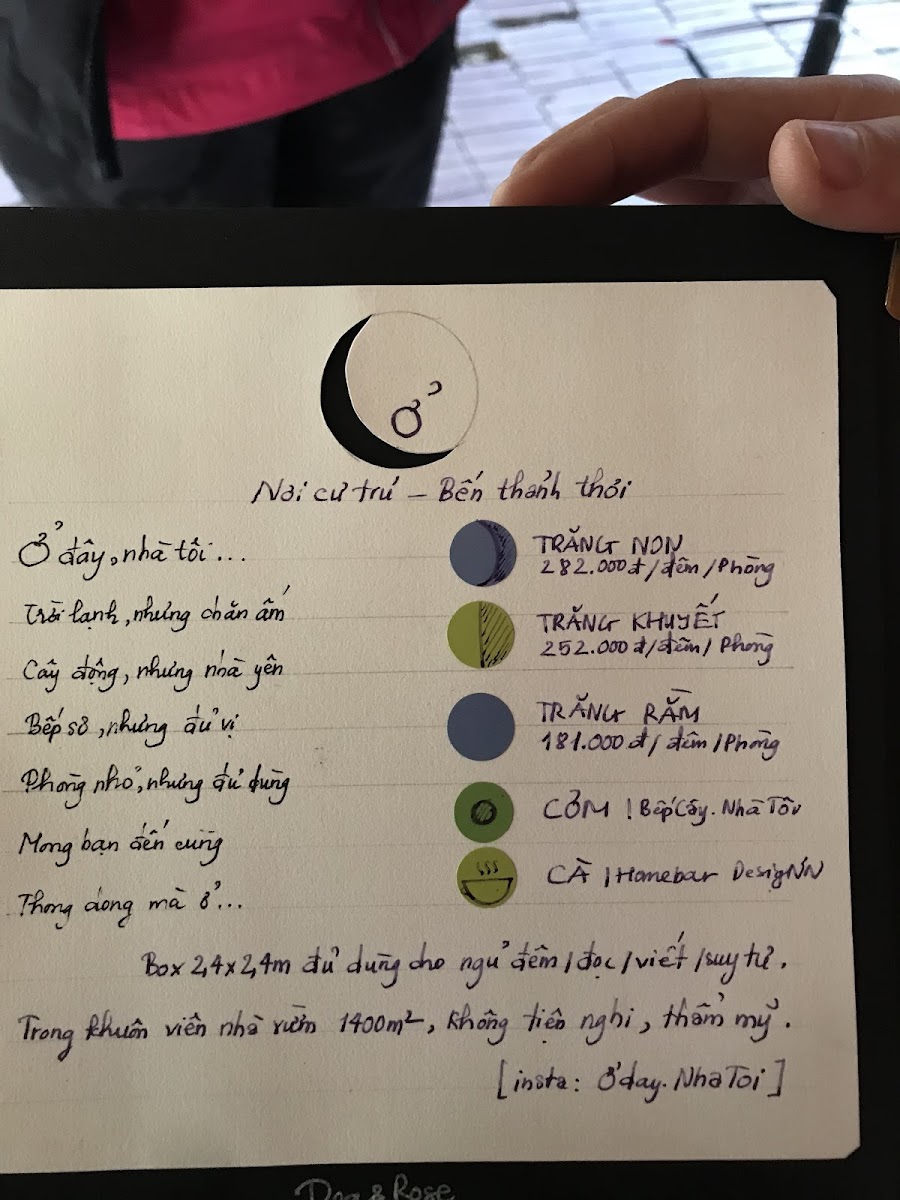 Ở
Nơi cư trú – Bến thảnh thơi
Ở đây, nhà tôi...
Trời lạnh, nhưng chăn ấm
Cây động, nhưng nhà yên
Bếp sơ, nhưng đủ vị
Phòng nhỏ, nhưng đủ dùng
Mong bạn đến cùng
Thong dong mà ở...
TRĂNG NON
282.000đ/đêm/Phòng
TRĂNG KHUYẾT
252.000đ/đêm/Phòng
TRĂNG RẰM
181.000đ/đêm/Phòng
CƠM | Bếp Cây. Nhà Tôi
CÀ | Homebar DesigNN
Box 2,4x2,4m đủ dùng cho ngủ đêm/đọc/viết/suy tư.
Trong khuôn viên nhà vườn 1400m², không tiện nghi, thẩm mỹ.
[insta: Ởday.NhaToi]
Dog & Rose